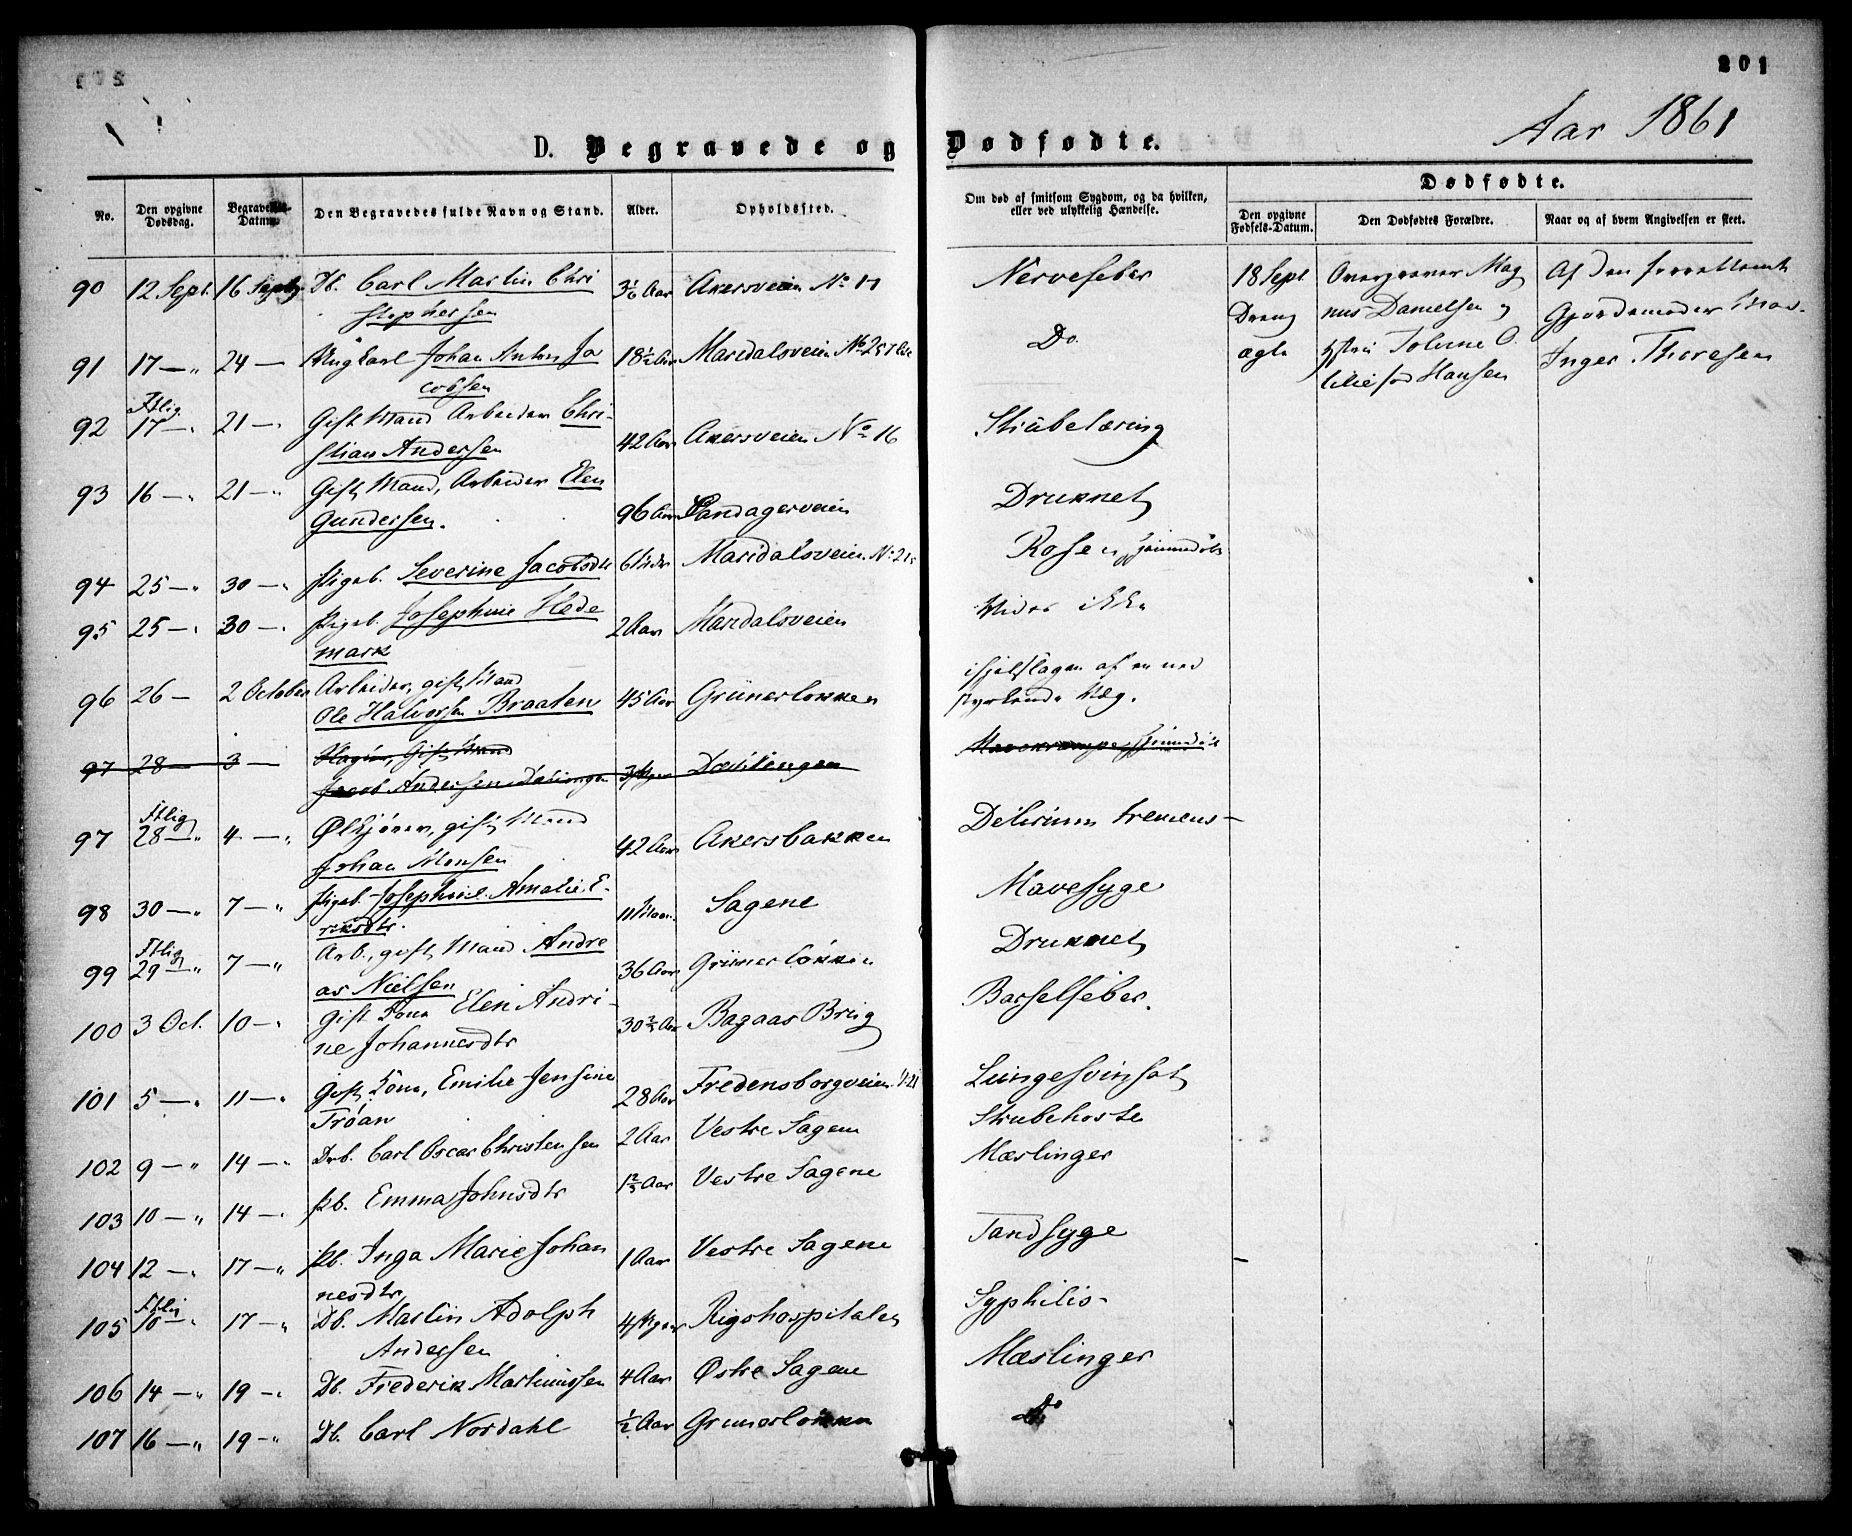 201
Aar 1861
D. Begravede og Dødfødte.
No.
Den opgivne Dødsdag.
Begravelses-Datum.
Den Begravedes fulde Navn og Stand.
Alder.
Opholdssted.
Om død af smitsom Sygdom, og da hvilken, eller ved ulykkelig Hændelse.
Dødfødte.
Den opgivne Fødsels-Datum.
Den Dødfødtes Forældre.
Naar og af hvem Angivelsen er skeet.
90 12 Sept. 16 Septbr. Db. Carl Martin Chri 3 1/6 Aar Akersveien No 11 Nervefeber
stophersen
18 Sept
Dreng
ægte
Magnus Danielsen og
Hustru
født Hansen
Af den forrettende
Gjordemoder
Inger Thoresen
91 17 — " 24 — Ungkarl Johan Anton Ja 18 1/2 Aar Maridalsveien Do.
cobsen
92 17 — " 21 — " Gift Mand Arbeider Chri-
stian Andersen 42 Aar Akersveien No 16 Strubelæring
93 16 — " 21 — " Gift Mand, Arbeider Elen
Gundersen. 96 Aar Sandagerveien Druknet
94 25 — " 30 — " Pigeb. Severine Jacobsdtr Maridalsveien Rosen, hjemmedøbt
95 25 — " 30 — " Pigeb. Josephine Hede 2 Aar Maridalsveien Vides ikke
mark
96 26 — 2 October Arbeider, gift Mand
Ole Halvorsen Braaten 45 Aar Grünerløkken ihjelslagen af en ned
styrtende Væg.
97 28 — 3 — Gift Mand
Jacob Andersen Dælivingen
97 28 — " 4 — " Ølkjører, gift Mand
Johan Monsen 42 Aar Akersbakken Delirium tremens —
98 30 — " 7 — " Pigeb. Josephine Amalie E-
riksdtr. 11 Maan. Sagene Mavesyge
99 29 — " 7 — " Arb., gift Mand Andre
as Nielsen 36 Aar Grünerløkken Druknet
100 3 Oct. 10 — " Gift Kone Elen Andri-
ne Johannesdtr 30 2/3 Aar Bagaas Brug Barselfeber.
101 5 — " 11 — " Gift Kone, Emilie Jensine
Trøan 28 Aar Fredensborgveien Lungesvinsot
102 9 — " 14 — " Drb. Carl Oscar Christensen 2 Aar Vestre Sagene Strubehoste
103 10 — " 14 — " Pb. Emma Johnsdtr 1 2/3 Aar Vestre Sagene Mæslinger
104 12 — " 17 — " Pb. Inga Marie Johan
nesdtr 1 Aar Vestre Sagene Tandsyge
105 10 — " 17 — " Db. Martin Adolph
Andersen 4 Uger Rigshospitalet Syphilis -
106 14 — " 19 — " Db. Frederik Martinussen 4 Aar Østre Sagene Mæslinger
107 16 — " 19 — " Db. Carl Nordahl 1/2 Aar Grünerløkken Do